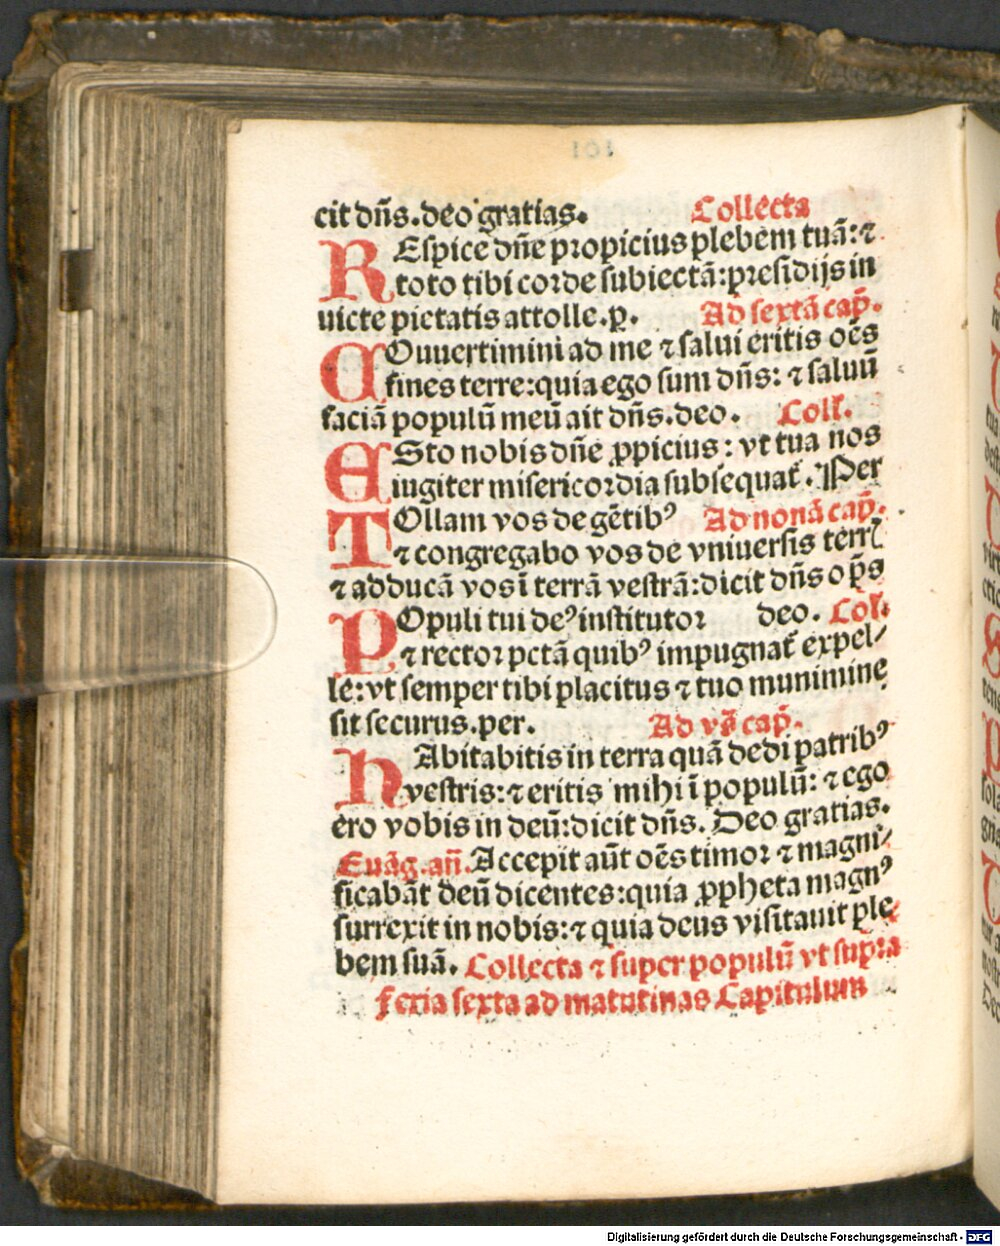 cit dn̄s. deo gratias. Collecta
REspice dn̄e propicius plebem tuā: ⁊
toto tibi corde subiectā: presidijs in
uicte pietatis attolle. p. Ad sextā cap̄.
COnuertimini ad me ⁊ salui eritis oēs
fines terre: quia ego sum dn̄s: ⁊ saluū
faciā populū meū ait dn̄s. deo. Coll̄.
ESto nobis dn̄e ꝓpicius: vt tua nos
iugiter misericordia subsequat̄. Per
TOllam vos de gētibꝰ Ad nonā cap̄.
⁊ congregabo vos de vniuersis terrꝭ
⁊ adducā vos ī terrā vestrā: dicit dn̄s op̄s
POpuli tui deꝰ institutor deo. Col̄.
⁊ rector pctā quibꝰ impugnat̄ expel⸗
le: vt semper tibi placitus ⁊ tuo munimine
sit securus. per. Ad vs̄ cap̄.
HAbitabitis in terra quā dedi patribꝰ
vestris: ⁊ eritis mihi ī populū: ⁊ ego
ero vobis in deū: dicit dn̄s. Deo gratias.
Euāg. an̄. Accepit aūt oēs timor ⁊ magni⸗
ficabāt deū dicentes: quia ꝓpheta magnꝰ
surrexit in nobis: ⁊ quia deus visitauit ple
bem suā. Collecta ⁊ super populū vt supra
feria sexta ad matutinas Capitulum
Digitalisierung gefördert durch die Deutsche Forschungsgemeinschaft - DFG